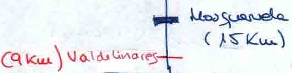 Mosqueruela
(15 Km)
(9 Km) Valdelinares